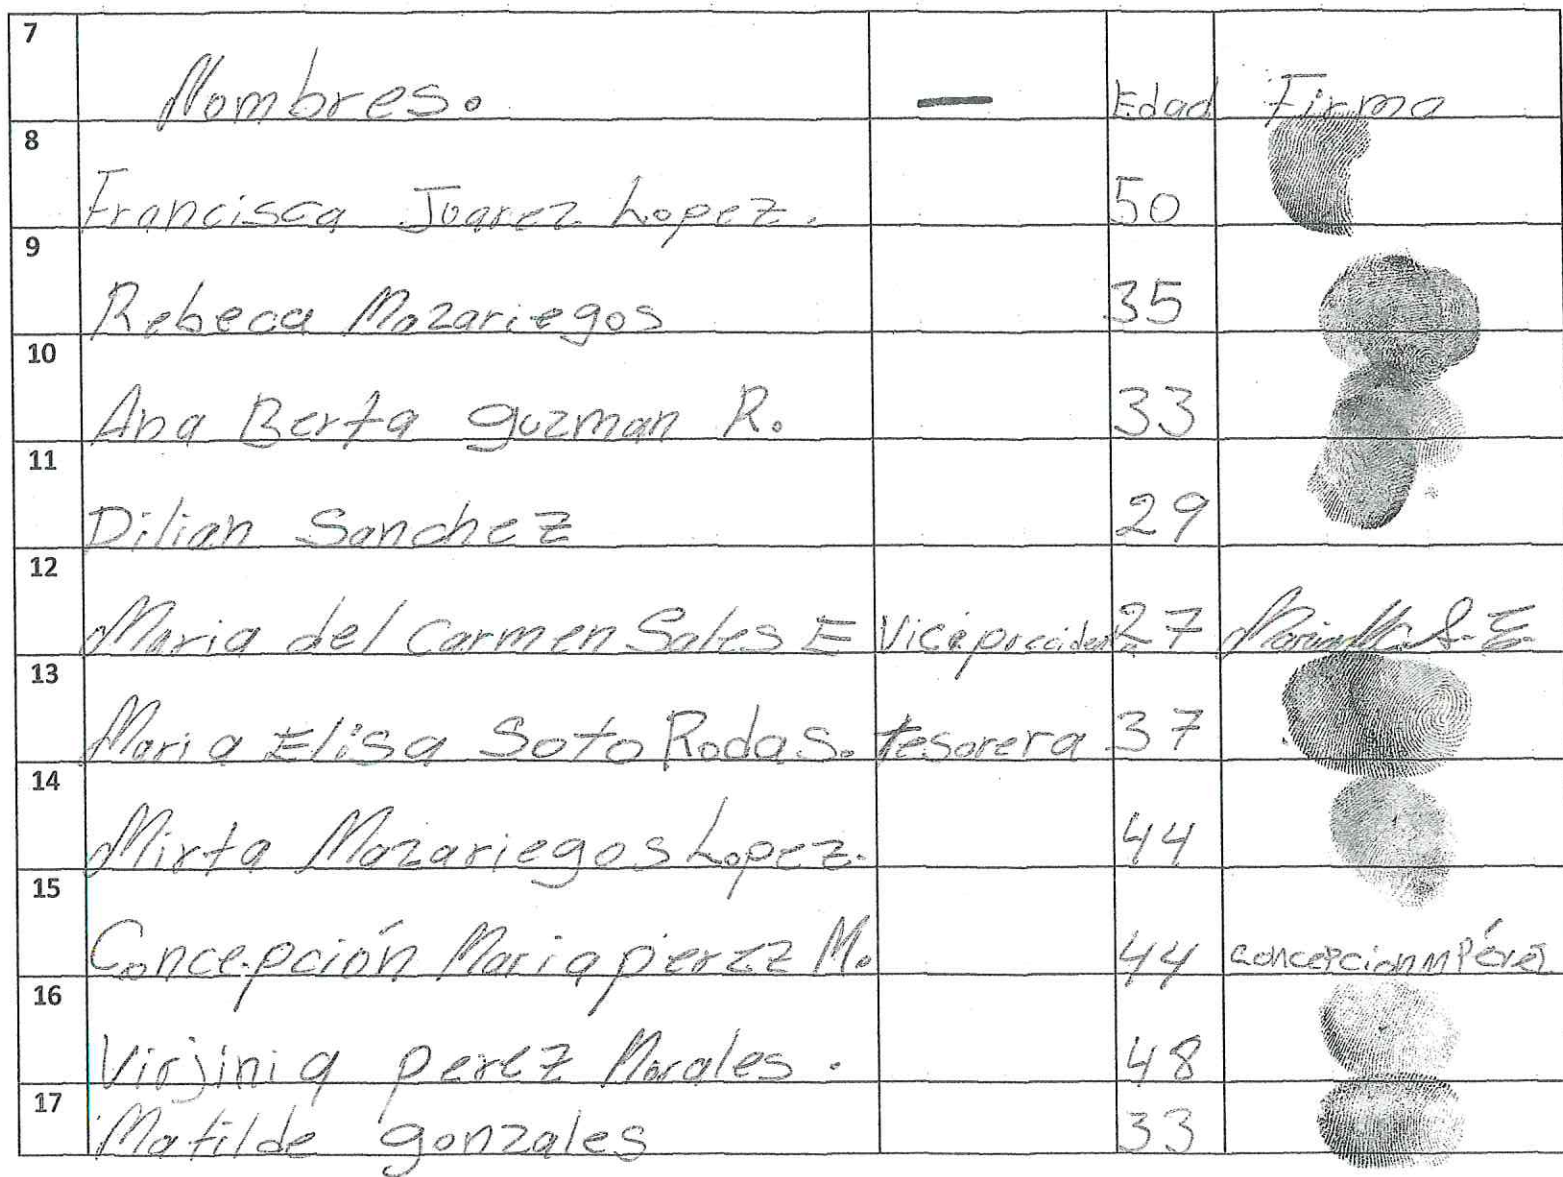 7 Nombres. — Edad Firma
8 Francisca Juarez Lopez. 50
9 Rebeca Mazariegos 35
10 Ana Berta guzman R. 33
11 Dilian Sanchez 29
12 Maria del Carmen Sales E Vicepreccident 27 S. E.
13 Maria Elisa Soto Rodas. tesorera 37
14 Mirta Mazariegos Lopez. 44
15 Concepción Maria pierzz M. 44 concepcion m Pérez
16 Virjinia perez Morales. 48
17 Matilde gonzales 33